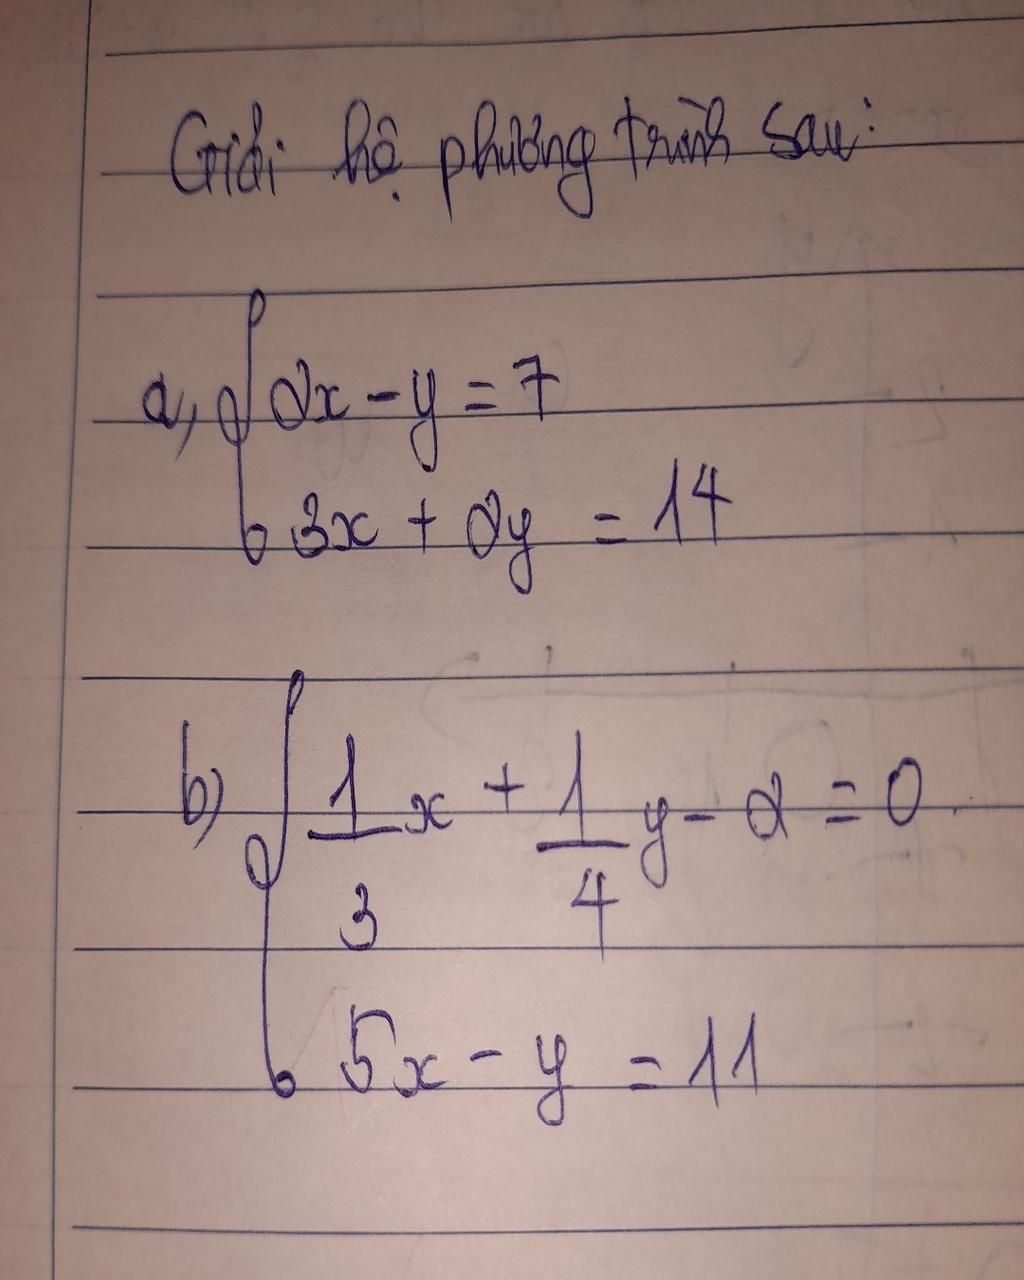 Giải hệ phương trình sau:
a, { 2x - y = 7
3x + 2y = 14
b) { 1/3 x + 1/4 y - 2 = 0
5x - y = 11